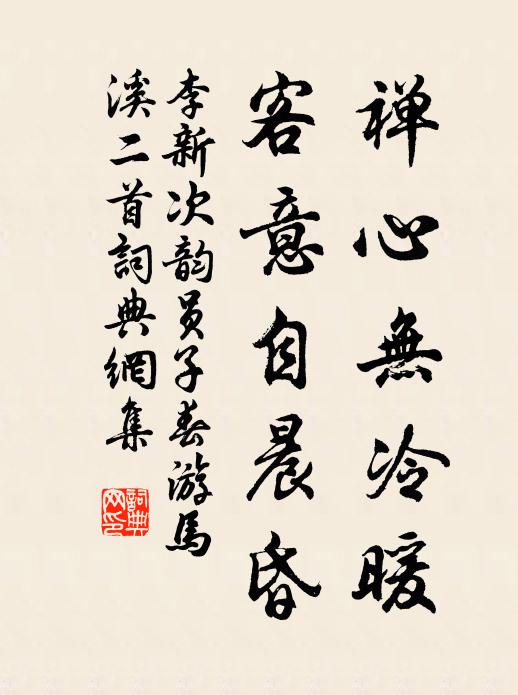 禅心無冷暖
客意自晨昏
李新次韵員子春游馬
溪二首詞典網集
詞典网印